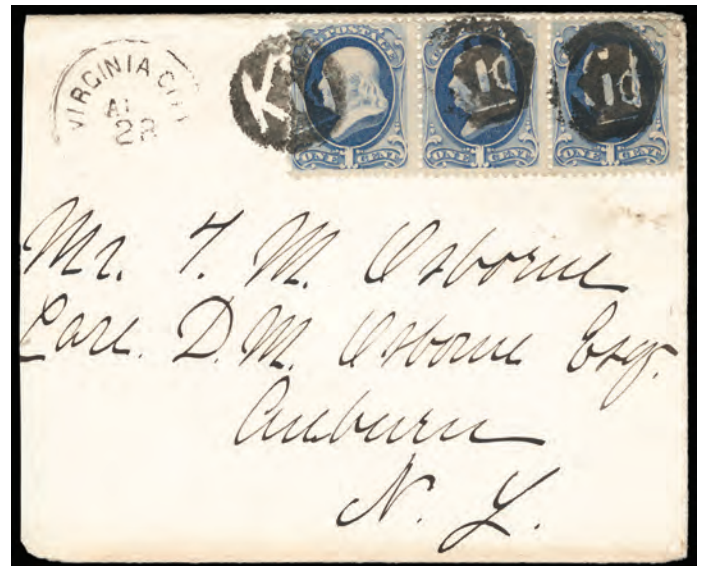 VIRGINIA CITY
28
K
POSTAGE
ONE 1 CENT
ONE 1 CENT
ONE 1 CENT
Mr. T. M. Osborne
Care. D. M. Osborne Esqr.
Auburn
N. Y.